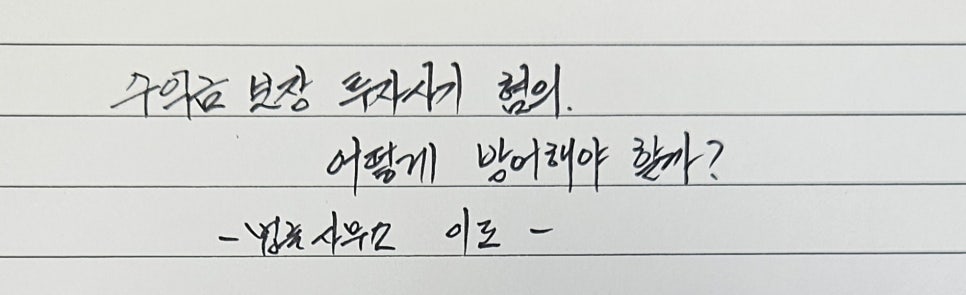 수익금 보장 투자사기 혐의.
어떻게 방어해야 할까?
- 법률사무소 이도 -